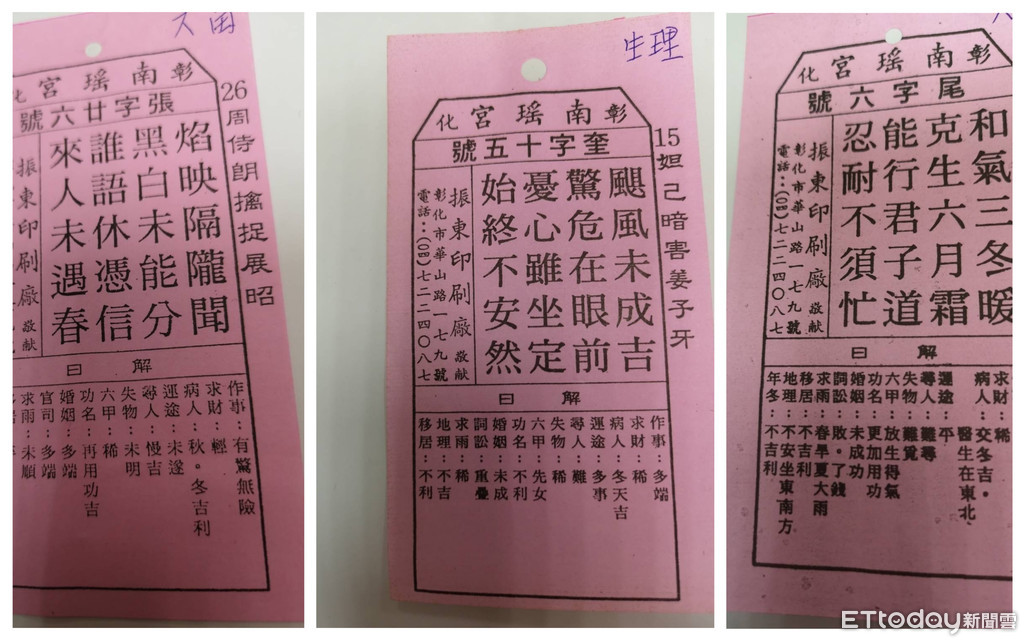 田
彰南瑤宮化
張字廿六號
26周侍朗擒捉展昭
焰映隔隴聞
黑白未能分
誰語休憑信
來人未遇春
振東印刷廠敬献
解曰
作事：有驚無險
求財：輕
病人：秋。冬吉利
運途：未遂
尋人：慢吉
失物：未明
六甲：稀
功名：再用功吉
婚姻：多端
官司：多端
求雨：未順
生理
彰南瑤宮化
奎字十五號
15妲己暗害姜子牙
颶風未成吉
驚危在眼前
憂心雖坐定
始終不安然
振東印刷廠敬献
彰化市華山路一七九號
電話：(〇四)七二二四〇八七
解曰
作事：多端
求財：稀
病人：冬天吉
運途：多事
尋人：難
失物：稀
六甲：先女
功名：不利
婚姻：未成
詞訟：重疊
求雨：稀
地理：不吉
移居：不利
彰南瑤宮化
尾字六號
和氣三冬暖
克生六月霜
能行君子道
忍耐不須忙
振東印刷廠敬献
彰化市華山路一七九號
電話：(〇四)七二二四〇八七
解曰
求財：稀
病人：交冬吉。
醫生在東北、
運途：平
尋人：難尋
失物：難覓
六甲：放生得氣
功名：更加用功
婚姻：未成功
詞訟：敗。了錢
求雨：春旱夏大雨
移居：不吉利
地理：不安坐東南方
年冬：不吉利
ETtoday新聞雲